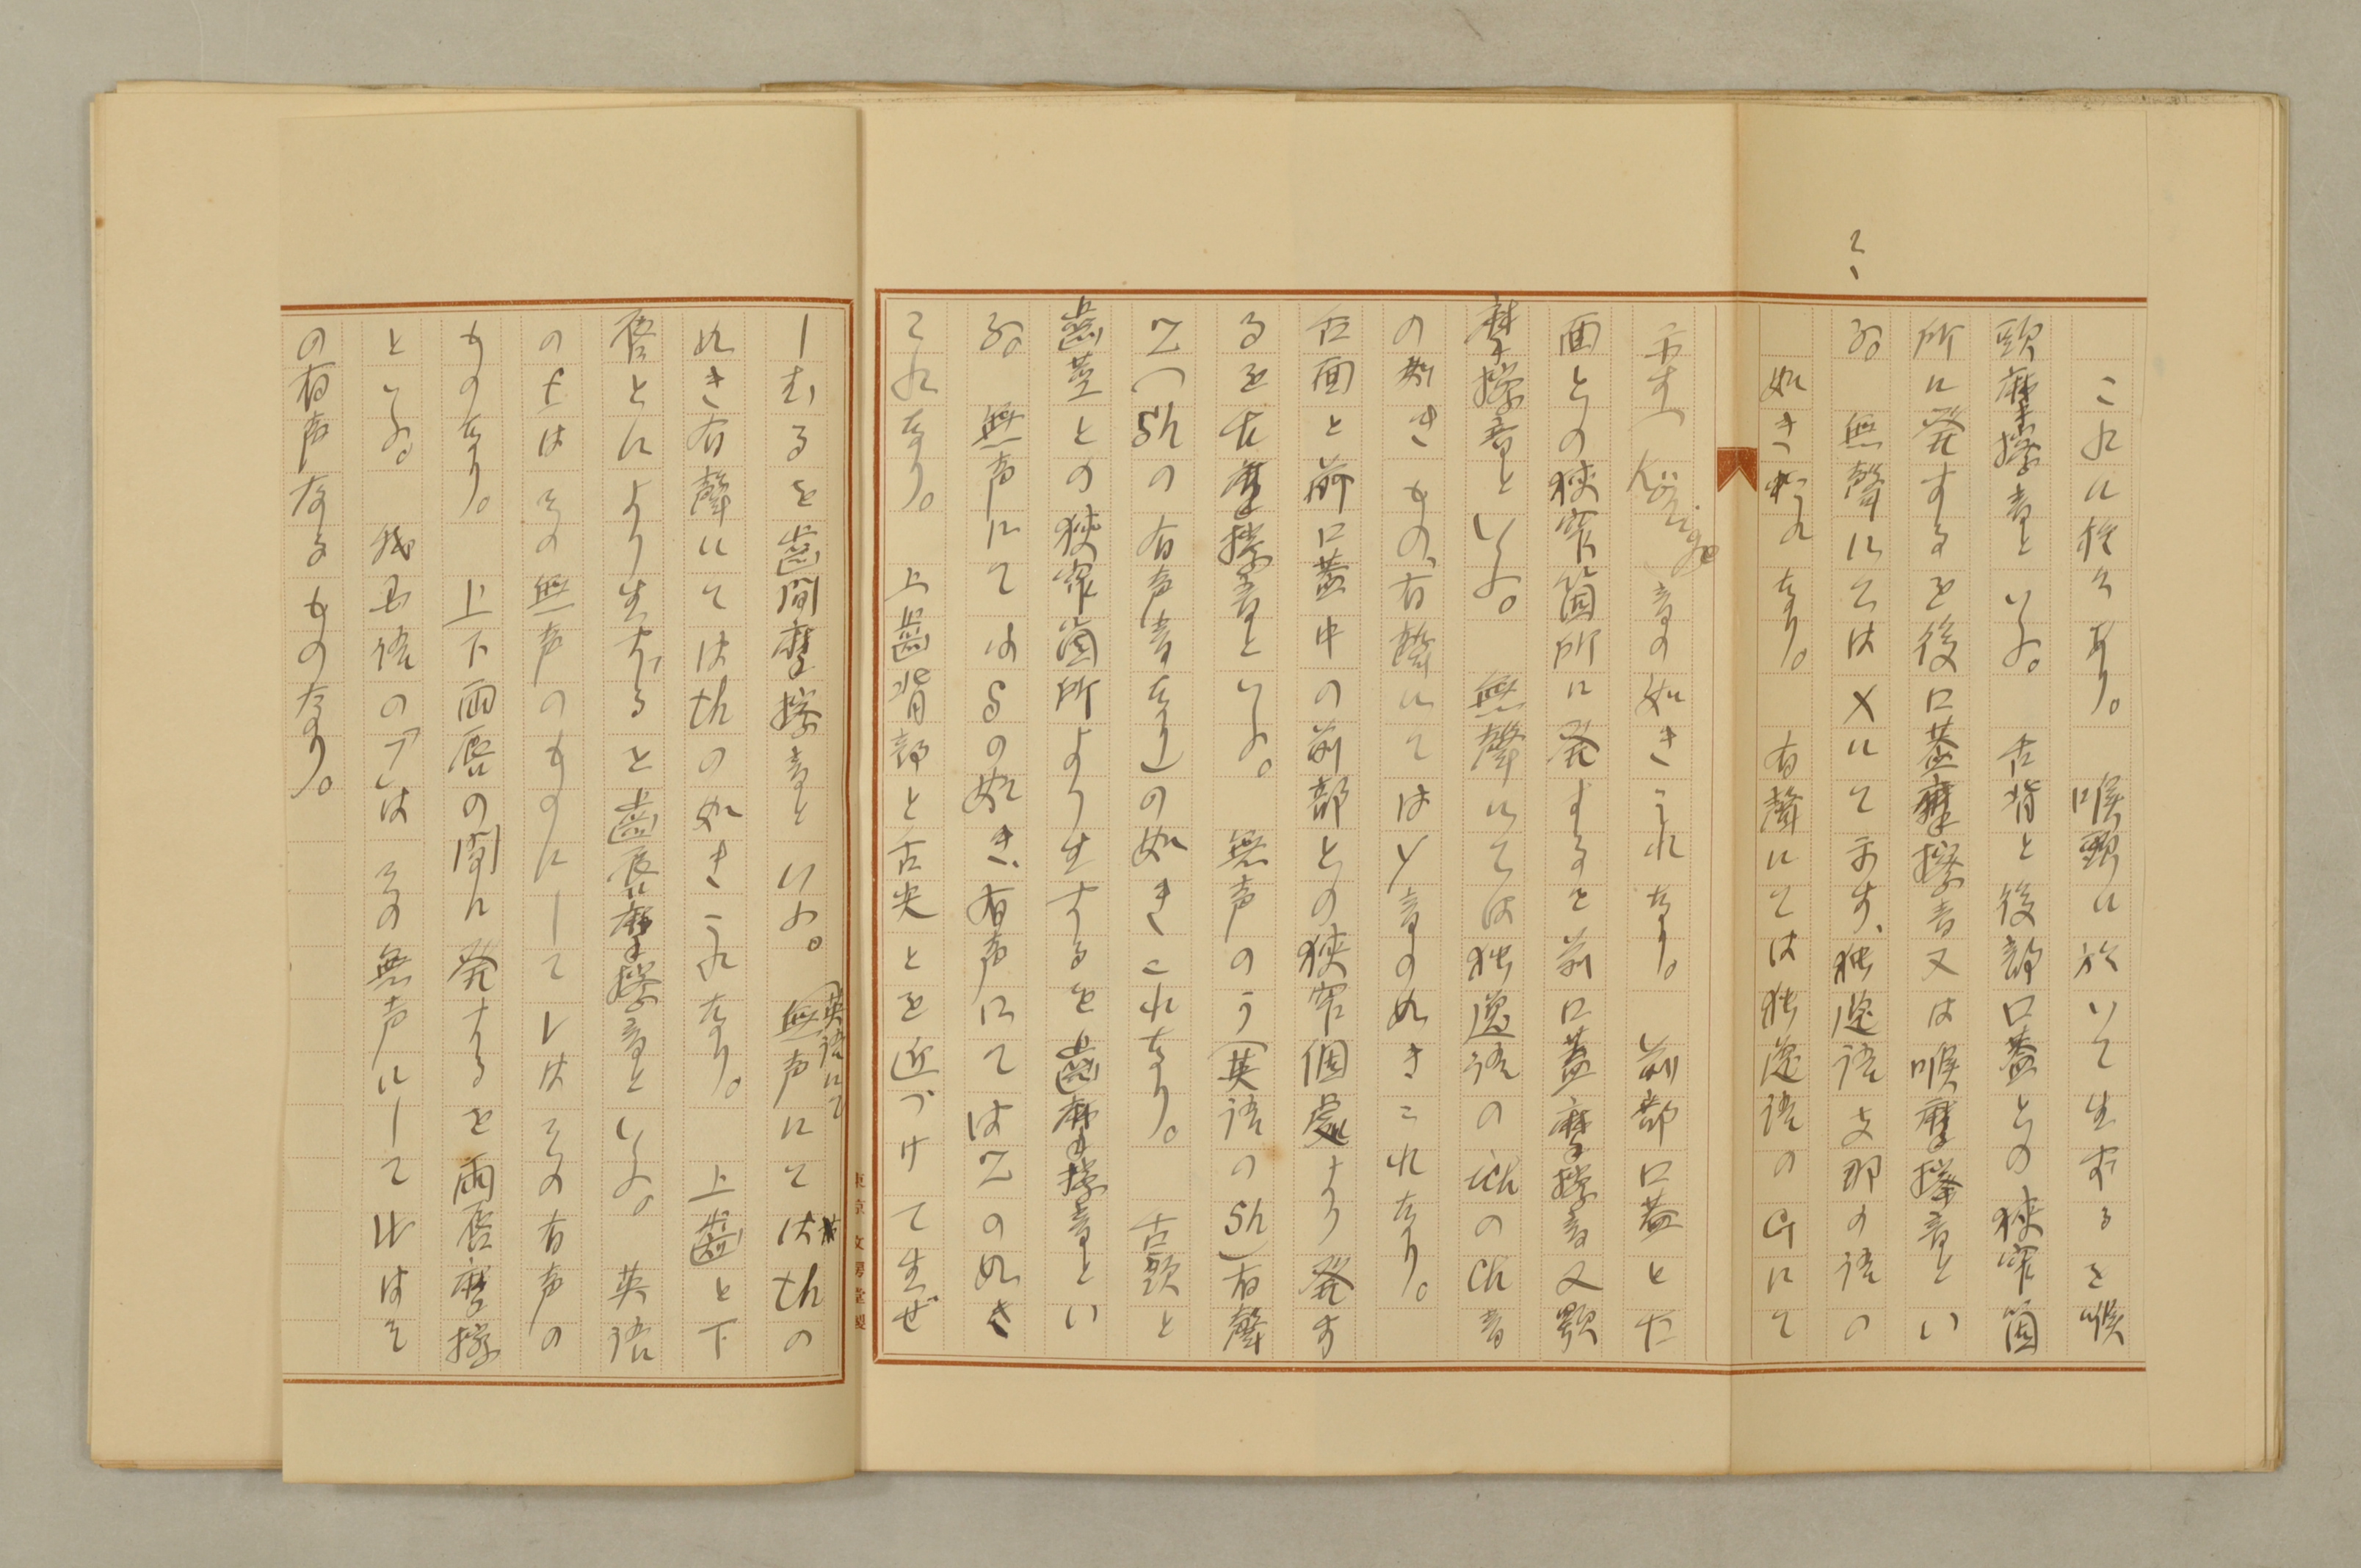 これに於てあり。喉頭に於いて生ずるを喉
頭摩擦音といふ。舌背と後部口蓋との狭窄箇
所に発するを後口蓋摩擦音又は喉摩擦音とい
ふ。無聲にては xにて示す、独逸語支那の語の
如きこれなり。有聲にては独逸語のGにて
示す(Könige)音の如きこれなり。前部口蓋と舌
面との狭窄箇所に発するを前口蓋摩擦音又顎
摩擦音といふ。無聲にては独逸語のichのch音
の如きもの、有聲にてはy音の如きこれなり。
舌面と前口蓋中の前部との狭窄個處より発す
るを舌摩擦音といふ。無声のう(英語のsh)有聲
Z(shの有声音なり)の如きこれなり。舌頭と
歯茎との狭窄箇所より生ずるを歯摩擦音とい
ふ。無声にてはSの如き、有声にてはZの如き
これなり。上歯背部と舌尖とを近づけて生ぜ
しむるを歯間摩擦音といふ。無声にては英語にてthの
如き有聲にてはthの如きこれなり。上歯と下
唇とにより生ずると歯唇摩擦音といふ。英語
のfはその無声のものにしてvはその有声の
ものなり。上下両唇の間に発するを両唇摩擦
といふ。我国語の「フ」はその無声にしてwはそ
の有声なるものなり。
東京 文房堂製